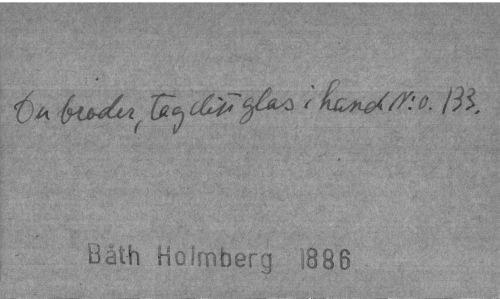 Du broder, tag ditt glas i hand N:o. 133.
Båth Holmberg 1886